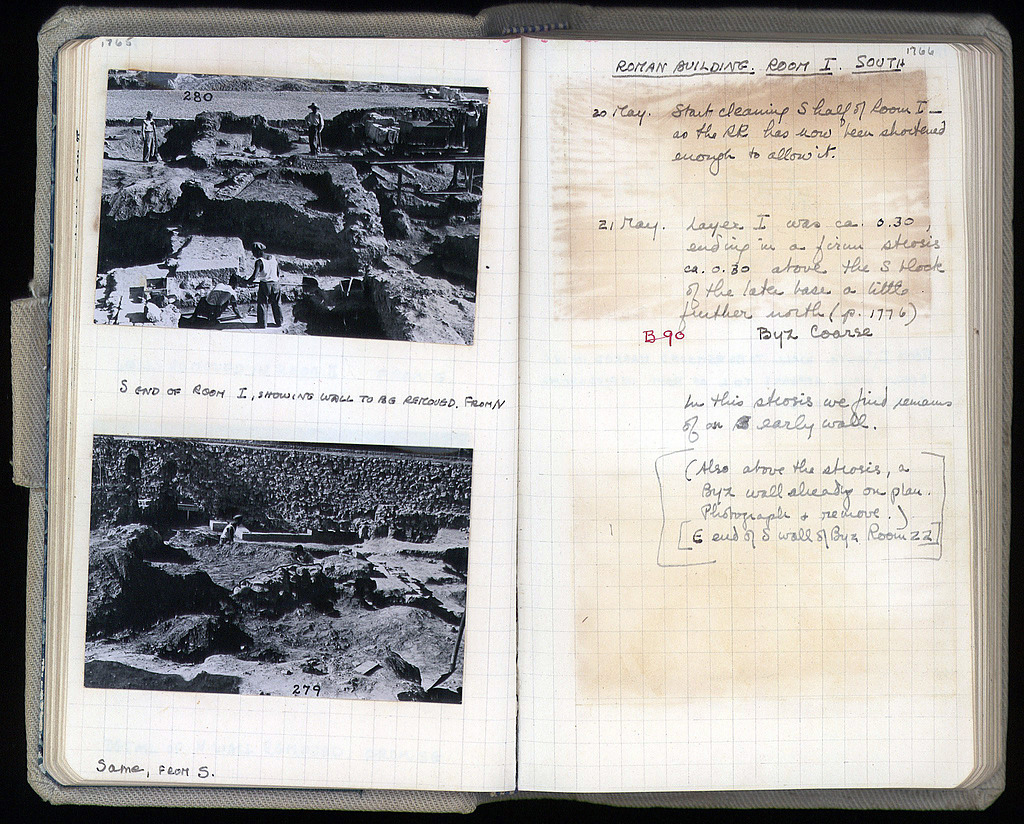 1765
280
S END OF ROOM I, SHOWING WALL TO BE REMOVED. FROM N
279
Same, FROM S.
1766
ROMAN BUILDING. ROOM I. SOUTH
20 May. Start cleaning S half of Room I –
as the RR has now been shortened
enough to allow it.
21 May. Layer I was ca. 0.30,
ending in a firm strosis
ca. 0.30 above the S block
of the later base a little
further north (p. 1776)
B 90 Byz Coarse
In this strosis we find remains
of an early wall.
(Also above the strosis, a
Byz wall already on plan.
Photograph + remove.)
[E end of S wall of Byz Room 22]